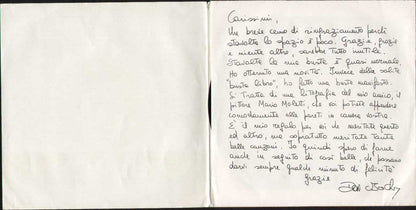 Carissimi,
Un breve cenno di ringraziamento perché
stavolta lo spazio è poco. Grazie, grazie
e niente altro, sarebbe tutto inutile.
Stavolta la mia busta è quasi normale.
Ho ottenuto una novità. Invece della solita
"busta libro", ho fatto una busta manifesto.
Si tratta di una litografia del mio amico, il
pittore Mario Moletti, che voi potrete appendere
comodamente alle pareti in camera vostra.
È il mio regalo per voi che meritate questo
ed altro, ma soprattutto meritate tante
belle canzoni. Io quindi spero di farne
anche in seguito di così belle, che possano
darvi sempre qualche minuto di felicità
grazie